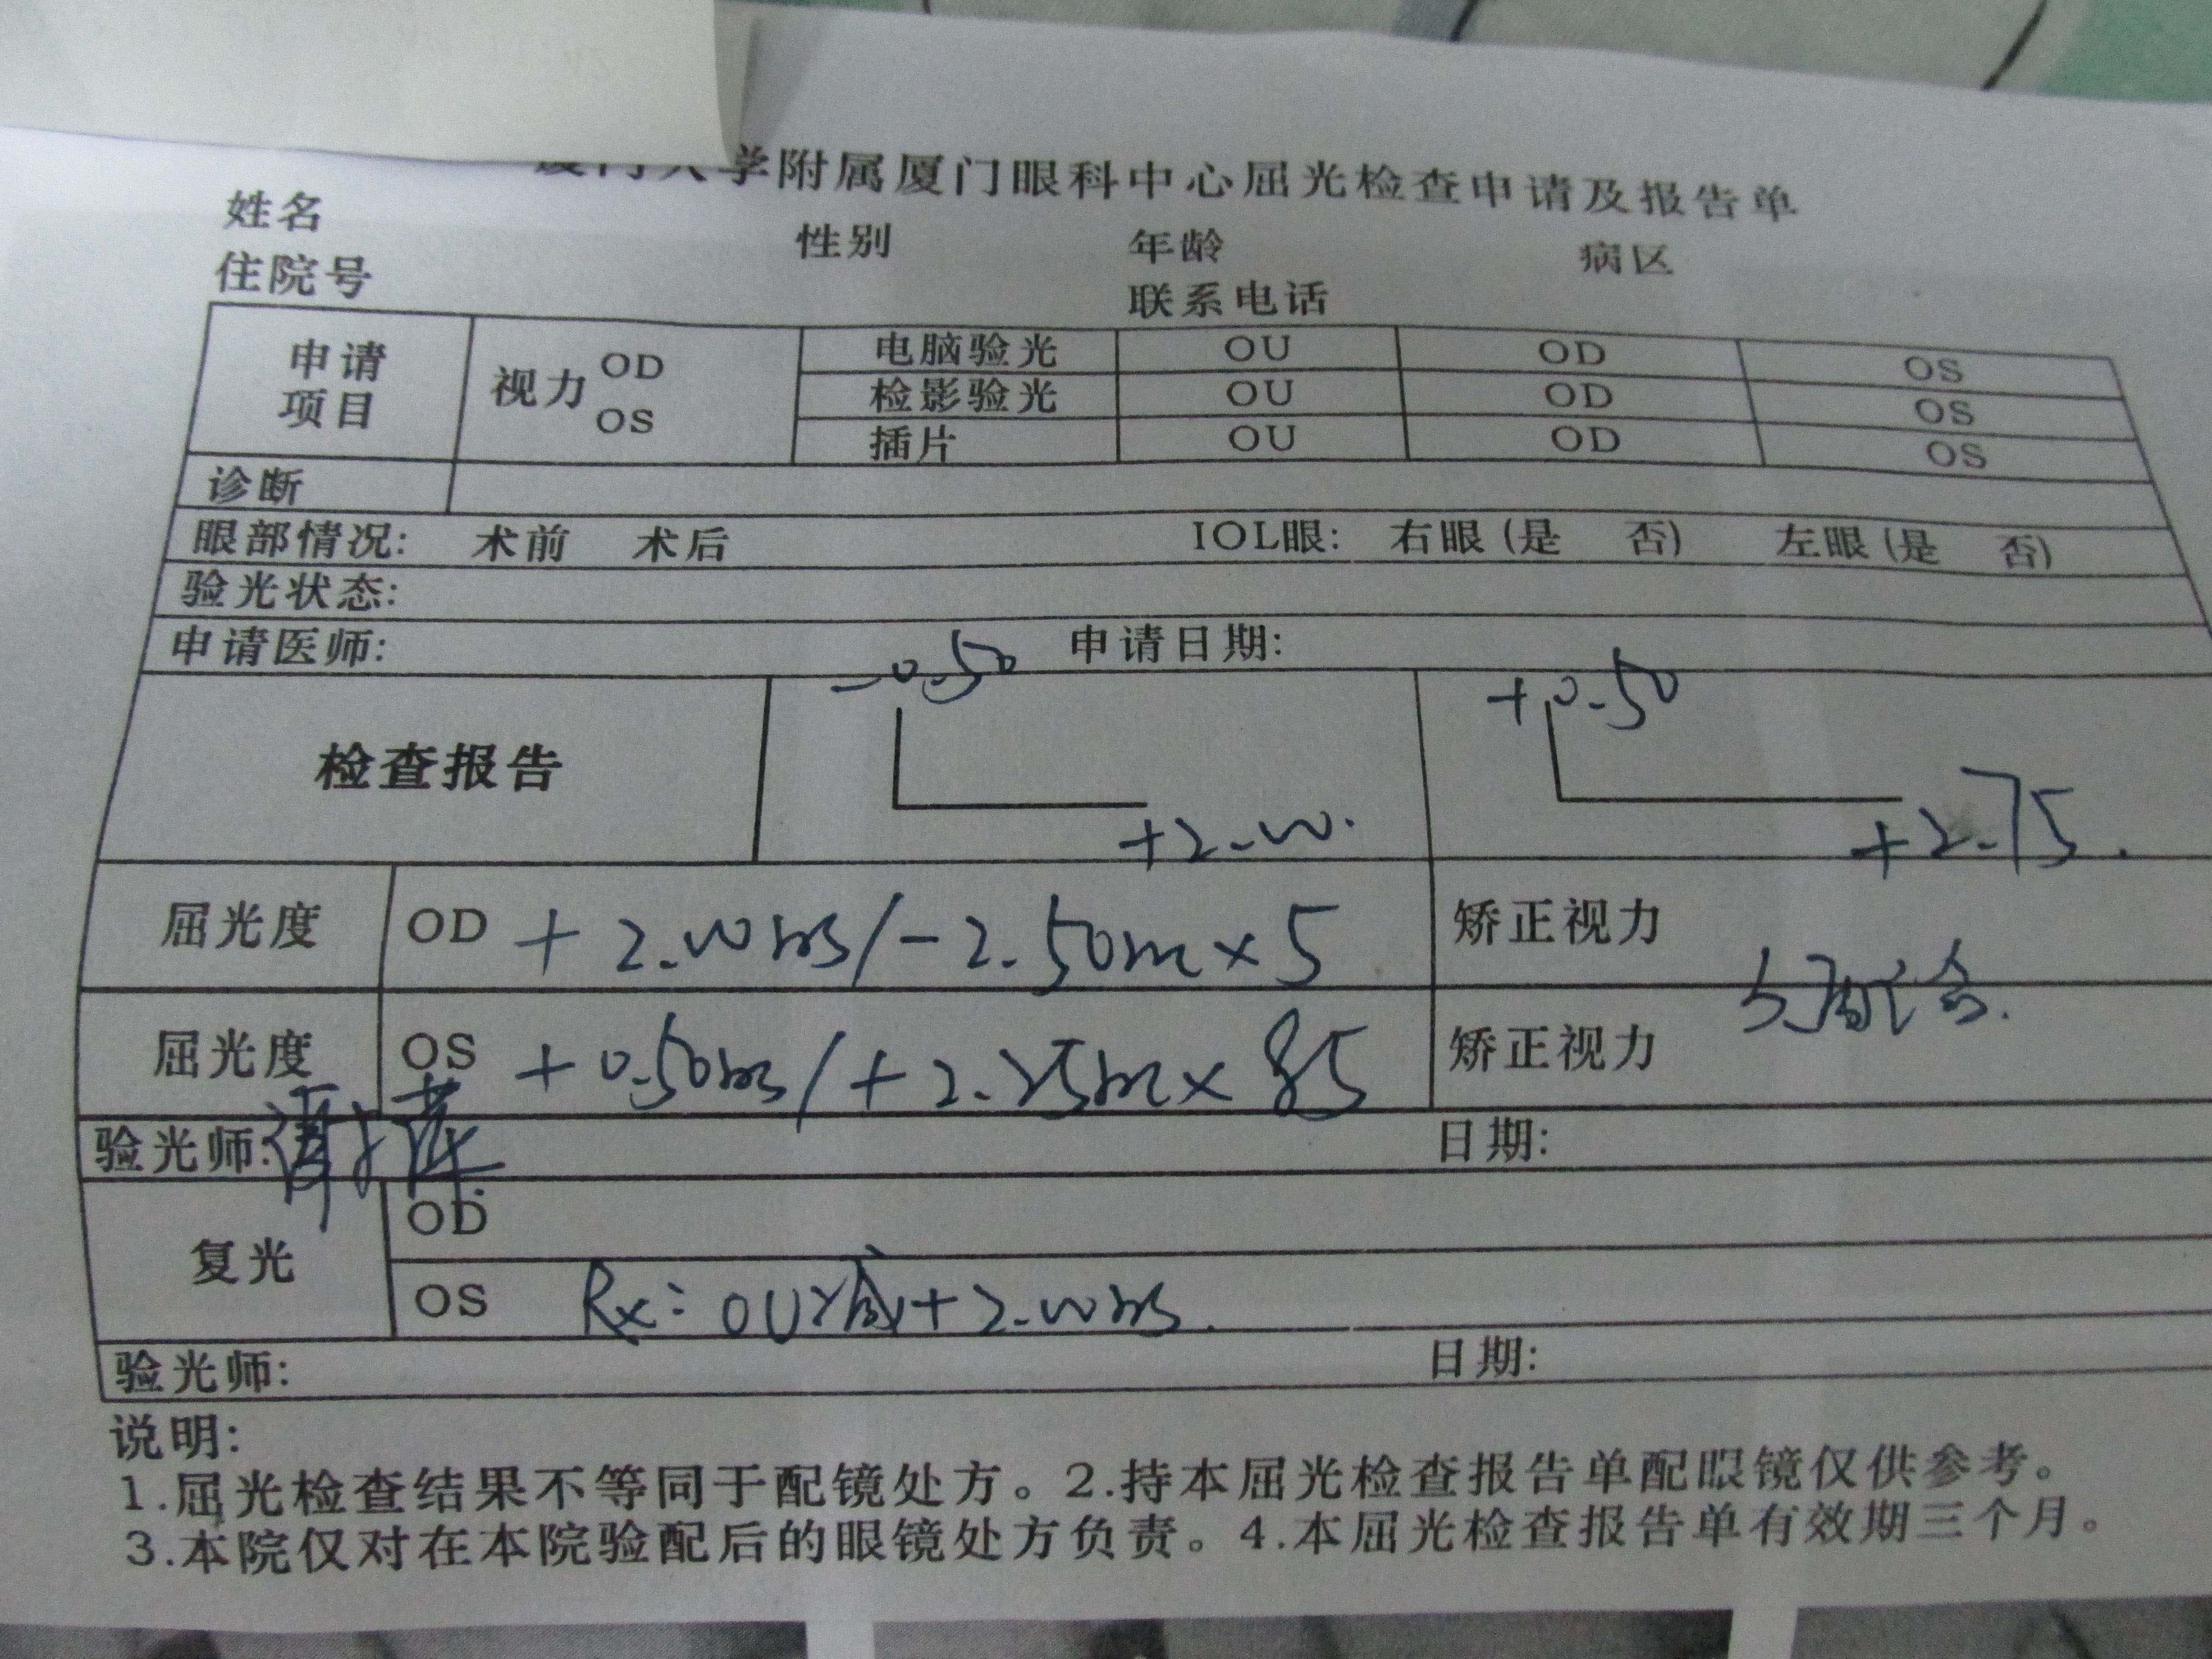 学附属厦门眼科中心屈光检查申请及报告单
姓名 性别 年龄 病区
住院号 联系电话
申请项目 视力 OD OS
电脑验光 OU OD OS
检影验光 OU OD OS
插片 OU OD OS
诊断
眼部情况: 术前 术后 IOL眼: 右眼(是 否) 左眼(是 否)
验光状态:
申请医师: 申请日期:
检查报告
-0.50 +0.50
+2.00. +2.75.
屈光度 OD +2.00DS/-2.50DC×5 矫正视力
不配合.
屈光度 OS +0.50DS/+2.25DC×85 矫正视力
验光师: 日期:
复光 OD
OS Rx: OU +2.00DS.
验光师: 日期:
说明:
1.屈光检查结果不等同于配镜处方。2.持本屈光检查报告单配眼镜仅供参考。
3.本院仅对在本院验配后的眼镜处方负责。4.本屈光检查报告单有效期三个月。